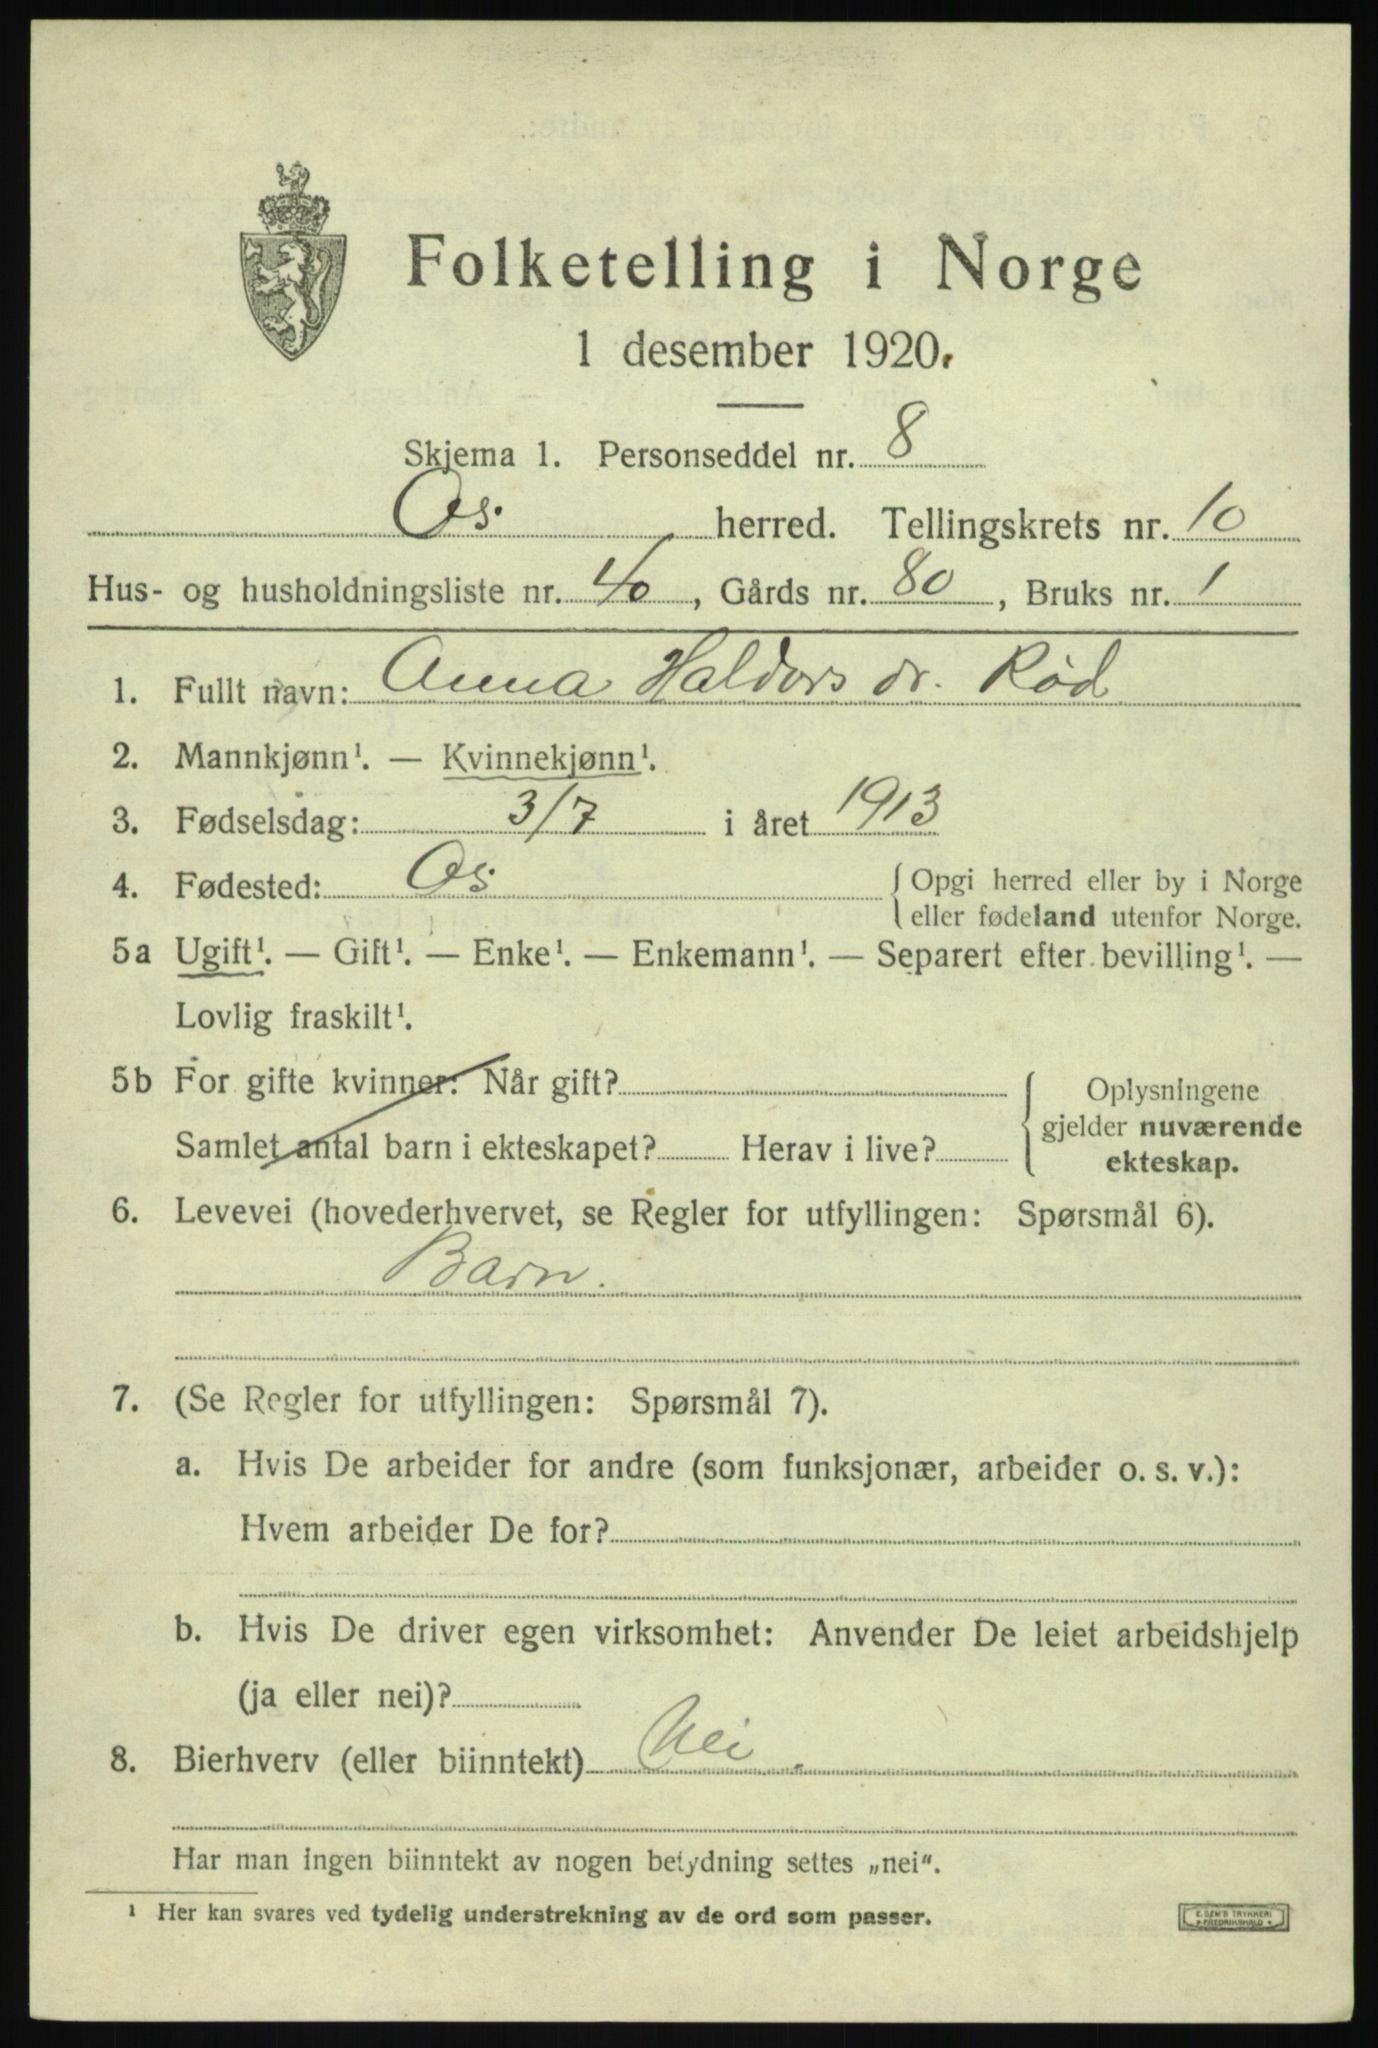 Folketelling i Norge
1 desember 1920.
Skjema 1. Personseddel nr. 8
Os. herred. Tellingskrets nr. 10
Hus- og husholdningsliste nr. 40, Gårds nr. 80, Bruks nr. 1
1. Fullt navn: Anna Haldors dr. Rød
2. Mannkjønn¹. — Kvinnekjønn¹.
3. Fødselsdag: 3/7 i året 1913
4. Fødested: Os. Opgi herred eller by i Norge
eller fødeland utenfor Norge.
5a Ugift¹. — Gift¹. — Enke¹. — Enkemann¹. — Separert efter bevilling¹. —
Lovlig fraskilt¹.
5b For gifte kvinner: Når gift?
Samlet antal barn i ekteskapet? Herav i live?
Oplysningene
gjelder nuværende
ekteskap.
6. Levevei (hovederhvervet, se Regler for utfyllingen: Spørsmål 6).
Barn.
7. (Se Regler for utfyllingen: Spørsmål 7).
a. Hvis De arbeider for andre (som funksjonær, arbeider o. s. v.):
Hvem arbeider De for?
b. Hvis De driver egen virksomhet: Anvender De leiet arbeidshjelp
(ja eller nei)?
8. Bierhverv (eller biinntekt) Nei.
Har man ingen biinntekt av nogen betydning settes „nei“.
¹ Her kan svares ved tydelig understrekning av de ord som passer.
E. SEM'S TRYKKERI
FREDRIKSHALD